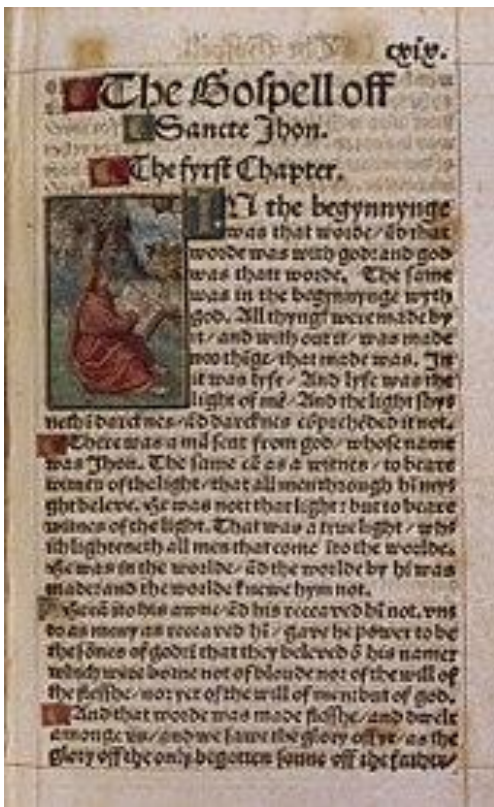 cxix.
The Gospell off
Sancte Jhon.
The fyrst Chapter.
IN the begynnynge
was that worde/ ād that
worde was with god: and god
was thatt worde. The same
was in the begynnynge wyth
god. All thyngs were made by
it/ and with out it/ was made
noo thīge/ that made was. In
it was lyfe/ And lyfe was the
light of mē/ And the light shys
neth ī darcknes/ ād darcknes cōprehēded it not.
There was a mā sent from god/ whose name
was Jhon. The same cā as a witnes/ to beare
witnes of the light/ that all men through hī mys
ght beleve. He was nott that light: but to beare
witnes of the light. That was a true light/ whi
ch lighteneth all men that come īto the worlde.
He was in the worlde/ ād the worlde by hī was
made: and the worlde knewe hym not.
He cā īto his awne/ ād his receaved hī not. vns
to as meny as receaved hī/ gave he power to be
the sōnes of god: ī that they beleved ō his name:
which were borne not of bloude nor of the will of
the flesshe/ nor yet of the will of men: but of god.
And that worde was made flesshe/ and dwelt
amonge vs/ and we sawe the glory off yt/ as the
glory off the only begotten sonne off the father/